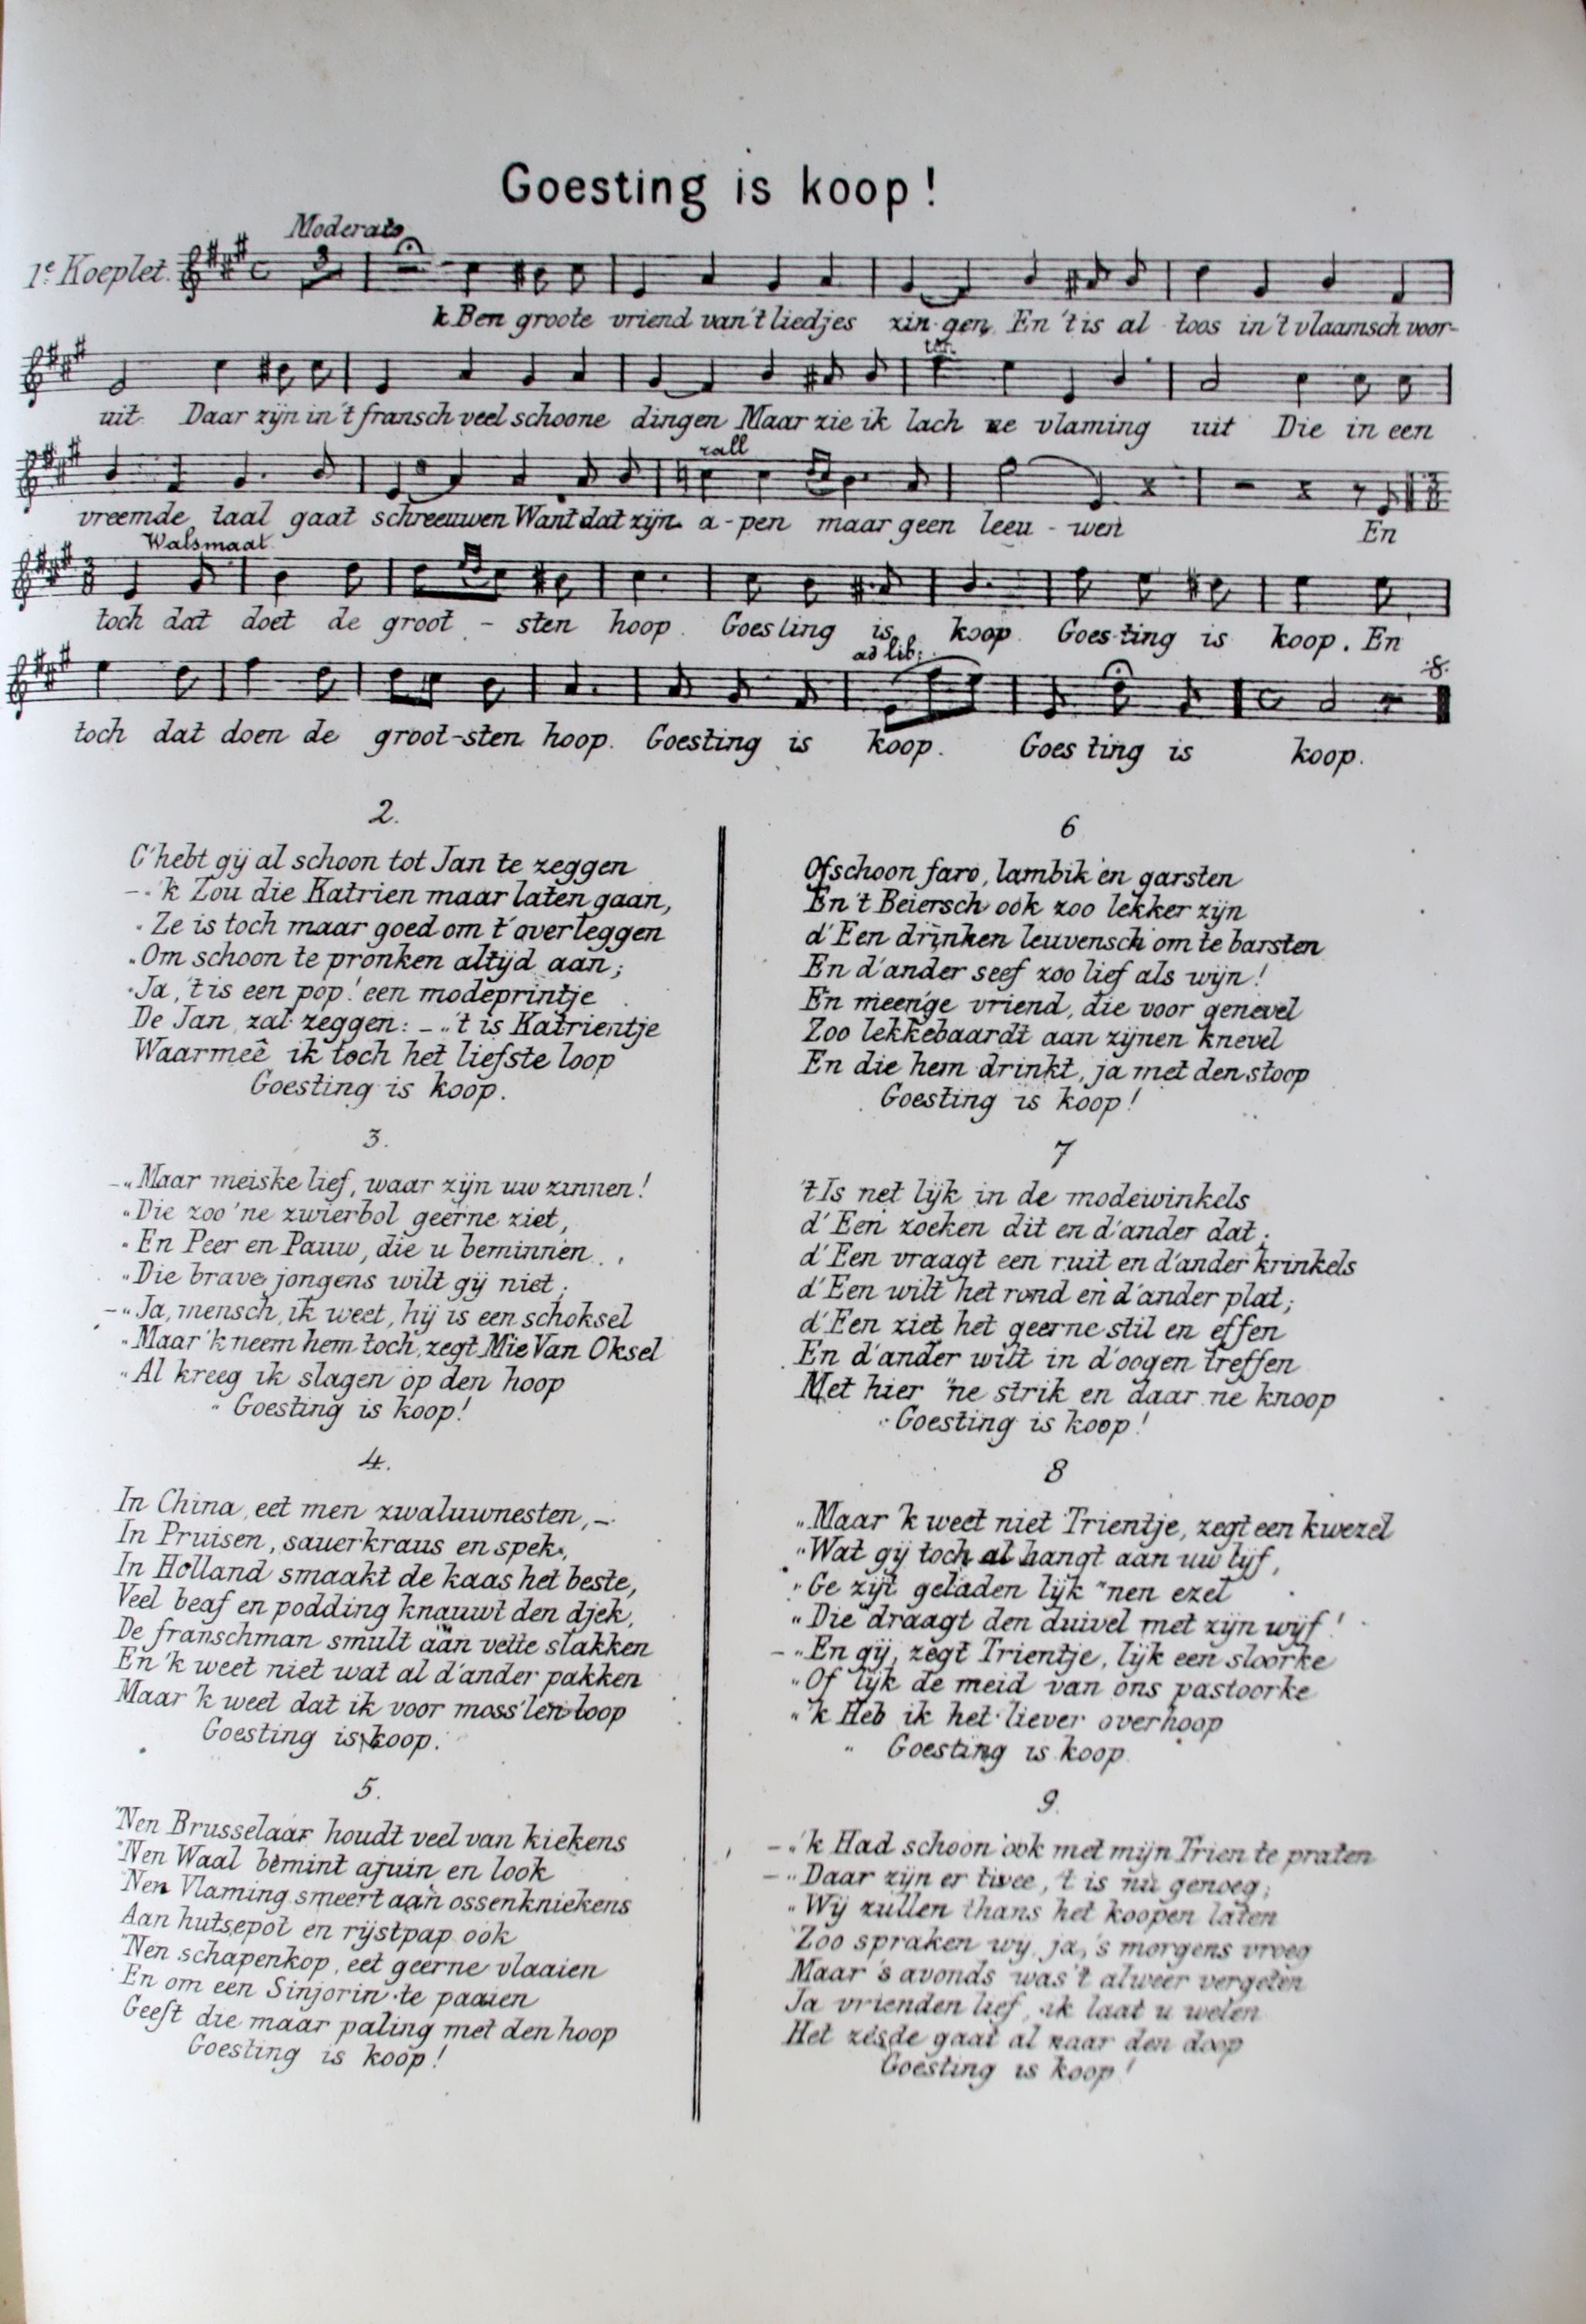 Goesting is koop!
Moderato
1e Koeplet.
3
'k Ben groote vriend van't liedjes zin-gen, En 't is al toos in't vlaamsch voor-
ten.
uit. Daar zijn in't fransch veel schoone dingen Maar zie ik lach ne vlaming uit Die in een
rall
vreemde taal gaat schreeuwen Want dat zijn a-pen maar geen leeu-wen En
Walsmaat.
toch dat doet de groot-sten hoop. Goesting is koop. Goes-ting is koop. En
ad lib:
toch dat doen de groot-sten hoop. Goesting is koop. Goes ting is koop.
2.
G'hebt gij al schoon tot Jan te zeggen
–„'k Zou die Katrien maar laten gaan,
„Ze is toch maar goed om t'overleggen
„Om schoon te pronken altijd aan;
„Ja, 't is een pop! een modeprintje
De Jan zal zeggen: –„'t is Katrientje
Waarmeê ik toch het liefste loop
Goesting is koop.
3.
–„Maar meiske lief, waar zijn uw zinnen!
„Die zoo 'ne zwierbol geerne ziet,
„En Peer en Pauw, die u beminnen
„Die brave jongens wilt gij niet;
–„Ja, mensch, ik weet, hij is een schoksel
„Maar 'k neem hem toch, zegt Mie Van Oksel
„Al kreeg ik slagen op den hoop
„Goesting is koop!
4.
In China, eet men zwaluwnesten, –
In Pruisen, sauerkraus en spek,
In Holland smaakt de kaas het beste,
Veel beaf en podding knauwt den djek,
De franschman smult aan vette slakken
En 'k weet niet wat al d'ander pakken
Maar 'k weet dat ik voor moss'len loop
Goesting is koop.
5.
'Nen Brusselaar houdt veel van kiekens
'Nen Waal bemint ajuin en look
'Nen Vlaming smeert aan ossenkniekens
Aan hutsepot en rijstpap ook
'Nen schapenkop, eet geerne vlaaien
En om een Sinjorin te paaien
Geeft die maar paling met den hoop
Goesting is koop!
6
Ofschoon faro, lambik en garsten
En 't Beiersch ook zoo lekker zijn
d'Een drinken leuvensch om te barsten
En d'ander seef zoo lief als wijn!
En meen'ge vriend, die voor genevel
Zoo lekkebaardt aan zijnen knevel
En die hem drinkt, ja met den stoop
Goesting is koop!
7
't Is net lijk in de modewinkels
d'Een zoeken dit en d'ander dat;
d'Een vraagt een ruit en d'ander krinkels
d'Een wilt het rond en d'ander plat;
d'Een ziet het geerne stil en effen
En d'ander wilt in d'oogen treffen
Met hier 'ne strik en daar ne knoop
Goesting is koop!
8
„Maar 'k weet niet Trientje, zegt een kwezel
„Wat gij toch al hangt aan uw lijf,
„Ge zijt geladen lijk 'nen ezel
„Die draagt den duivel met zijn wijf!
–„En gij, zegt Trientje, lijk een sloorke
„Of lijk de meid van ons pastoorke
„'k Heb ik het liever overhoop
„Goesting is koop.
9.
–„'k Had schoon ook met mijn Trien te praten
–„Daar zijn er twee, 't is nu genoeg;
„Wij zullen thans het koopen laten
Zoo spraken wij, ja, 's morgens vroeg
Maar 's avonds was 't alweer vergeten
Ja vrienden lief, ik laat u weten
Het zesde gaat al naar den doop
Goesting is koop!